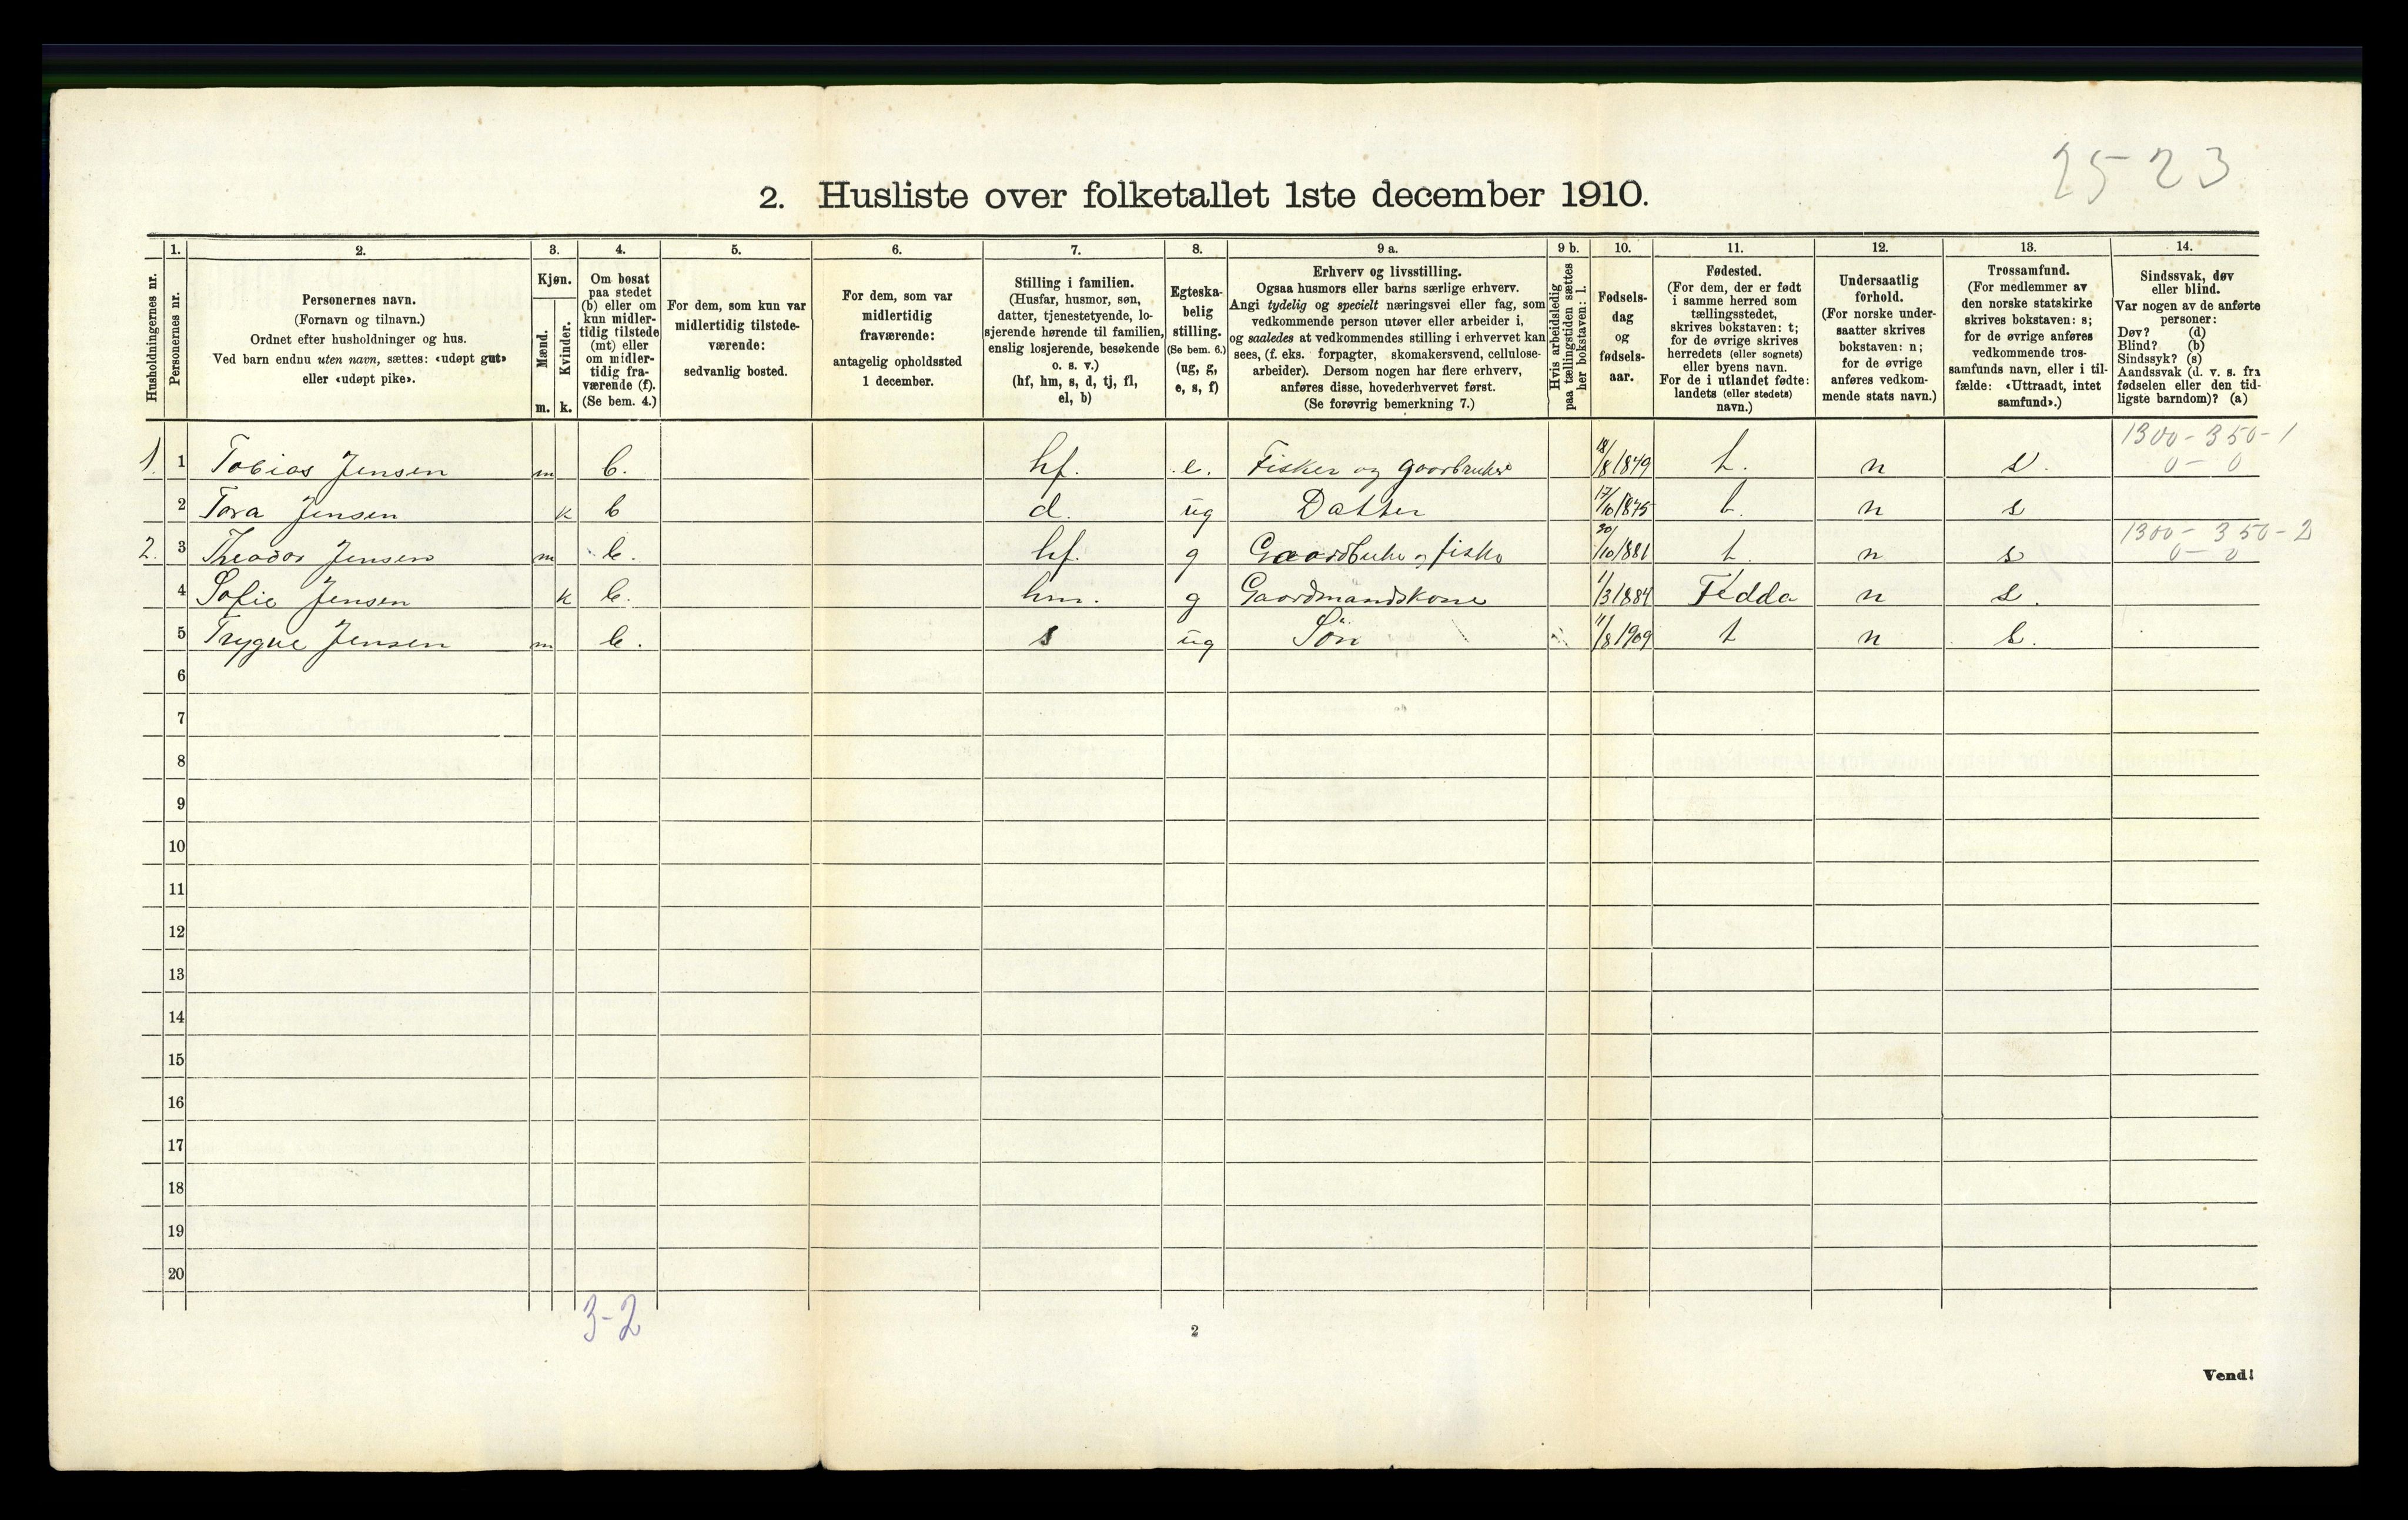 25-23
2. Husliste over folketallet 1ste december 1910.
1. 2. 3. 4. 5. 6. 7. 8. 9 a. 9 b. 10. 11. 12. 13. 14.
Husholdningernes nr.
Personernes nr.
Personernes navn.
(Fornavn og tilnavn.)
Ordnet efter husholdninger og hus.
Ved barn endnu uten navn, sættes: «udøpt gut»
eller «udøpt pike».
Kjøn.
Mænd.
Kvinder.
m. k.
Om bosat
paa stedet
(b) eller om
kun midler-
tidig tilstede
(mt) eller
om midler-
tidig fra-
værende (f).
(Se bem. 4.)
For dem, som kun var
midlertidig tilstede-
værende:
sedvanlig bosted.
For dem, som var
midlertidig
fraværende:
antagelig opholdssted
1 december.
Stilling i familien.
(Husfar, husmor, søn,
datter, tjenestetyende, lo-
sjerende hørende til familien,
enslig losjerende, besøkende
o. s. v.)
(hf, hm, s, d, tj, fl,
el, b)
Egteska-
belig
stilling.
(Se bem. 6.)
(ug, g,
e, s, f)
Erhverv og livsstilling.
Ogsaa husmors eller barns særlige erhverv.
Angi tydelig og specielt næringsvei eller fag, som
vedkommende person utøver eller arbeider i,
og saaledes at vedkommendes stilling i erhvervet kan
sees, (f. eks. forpagter, skomakersvend, cellulose-
arbeider). Dersom nogen har flere erhverv,
anføres disse, hovederhvervet først.
(Se forøvrig bemerkning 7.)
Hvis arbeidsledig
paa tællingstiden sættes
her bokstaven: l.
Fødsels-
dag
og
fødsels-
aar.
Fødested.
(For dem, der er født
i samme herred som
tællingsstedet,
skrives bokstaven: t;
for de øvrige skrives
herredets (eller sognets)
eller byens navn.
For de i utlandet fødte:
landets (eller stedets)
navn.)
Undersaatlig
forhold.
(For norske under-
saatter skrives
bokstaven: n;
for de øvrige
anføres vedkom-
mende stats navn.)
Trossamfund.
(For medlemmer av
den norske statskirke
skrives bokstaven: s;
for de øvrige anføres
vedkommende tros-
samfunds navn, eller i til-
fælde: «Uttraadt, intet
samfund».)
Sindssvak, døv
eller blind.
Var nogen av de anførte
personer:
Døv? (d)
Blind? (b)
Sindssyk? (s)
Aandssvak (d. v. s. fra
fødselen eller den tid-
ligste barndom)? (a)
1300-350-1
1. 1 Tobias Jensen m b. hf. e. Fisker og gaardbruker 18/8 1849 t. n s. 0-0
2 Tora Jensen k b d. ug Datter 17/10 1875 t. n s
1300-350-2
2. 3 Theodor Jensen m b. hf. g 30/10 1881 t n s 0-0
4 Sofie Jensen k b. hm. g Gaardmandskone 1/3 1884 Fedda n s.
5 Trygve Jensen m b. s ug Sön 11/8 1909 t n s.
6
7
8
9
10
11
12
13
14
15
16
17
18
19
20
3-2
2
Vend!